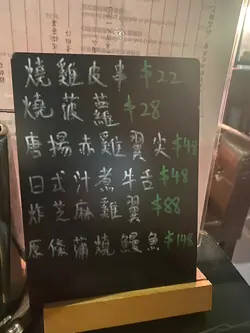 燒雞皮串 $22
燒菠蘿 $28
唐揚赤雞翼尖 $48
日式汁煮牛舌 $48
炸芝麻雞翼 $88
原條蒲燒鰻魚 $148